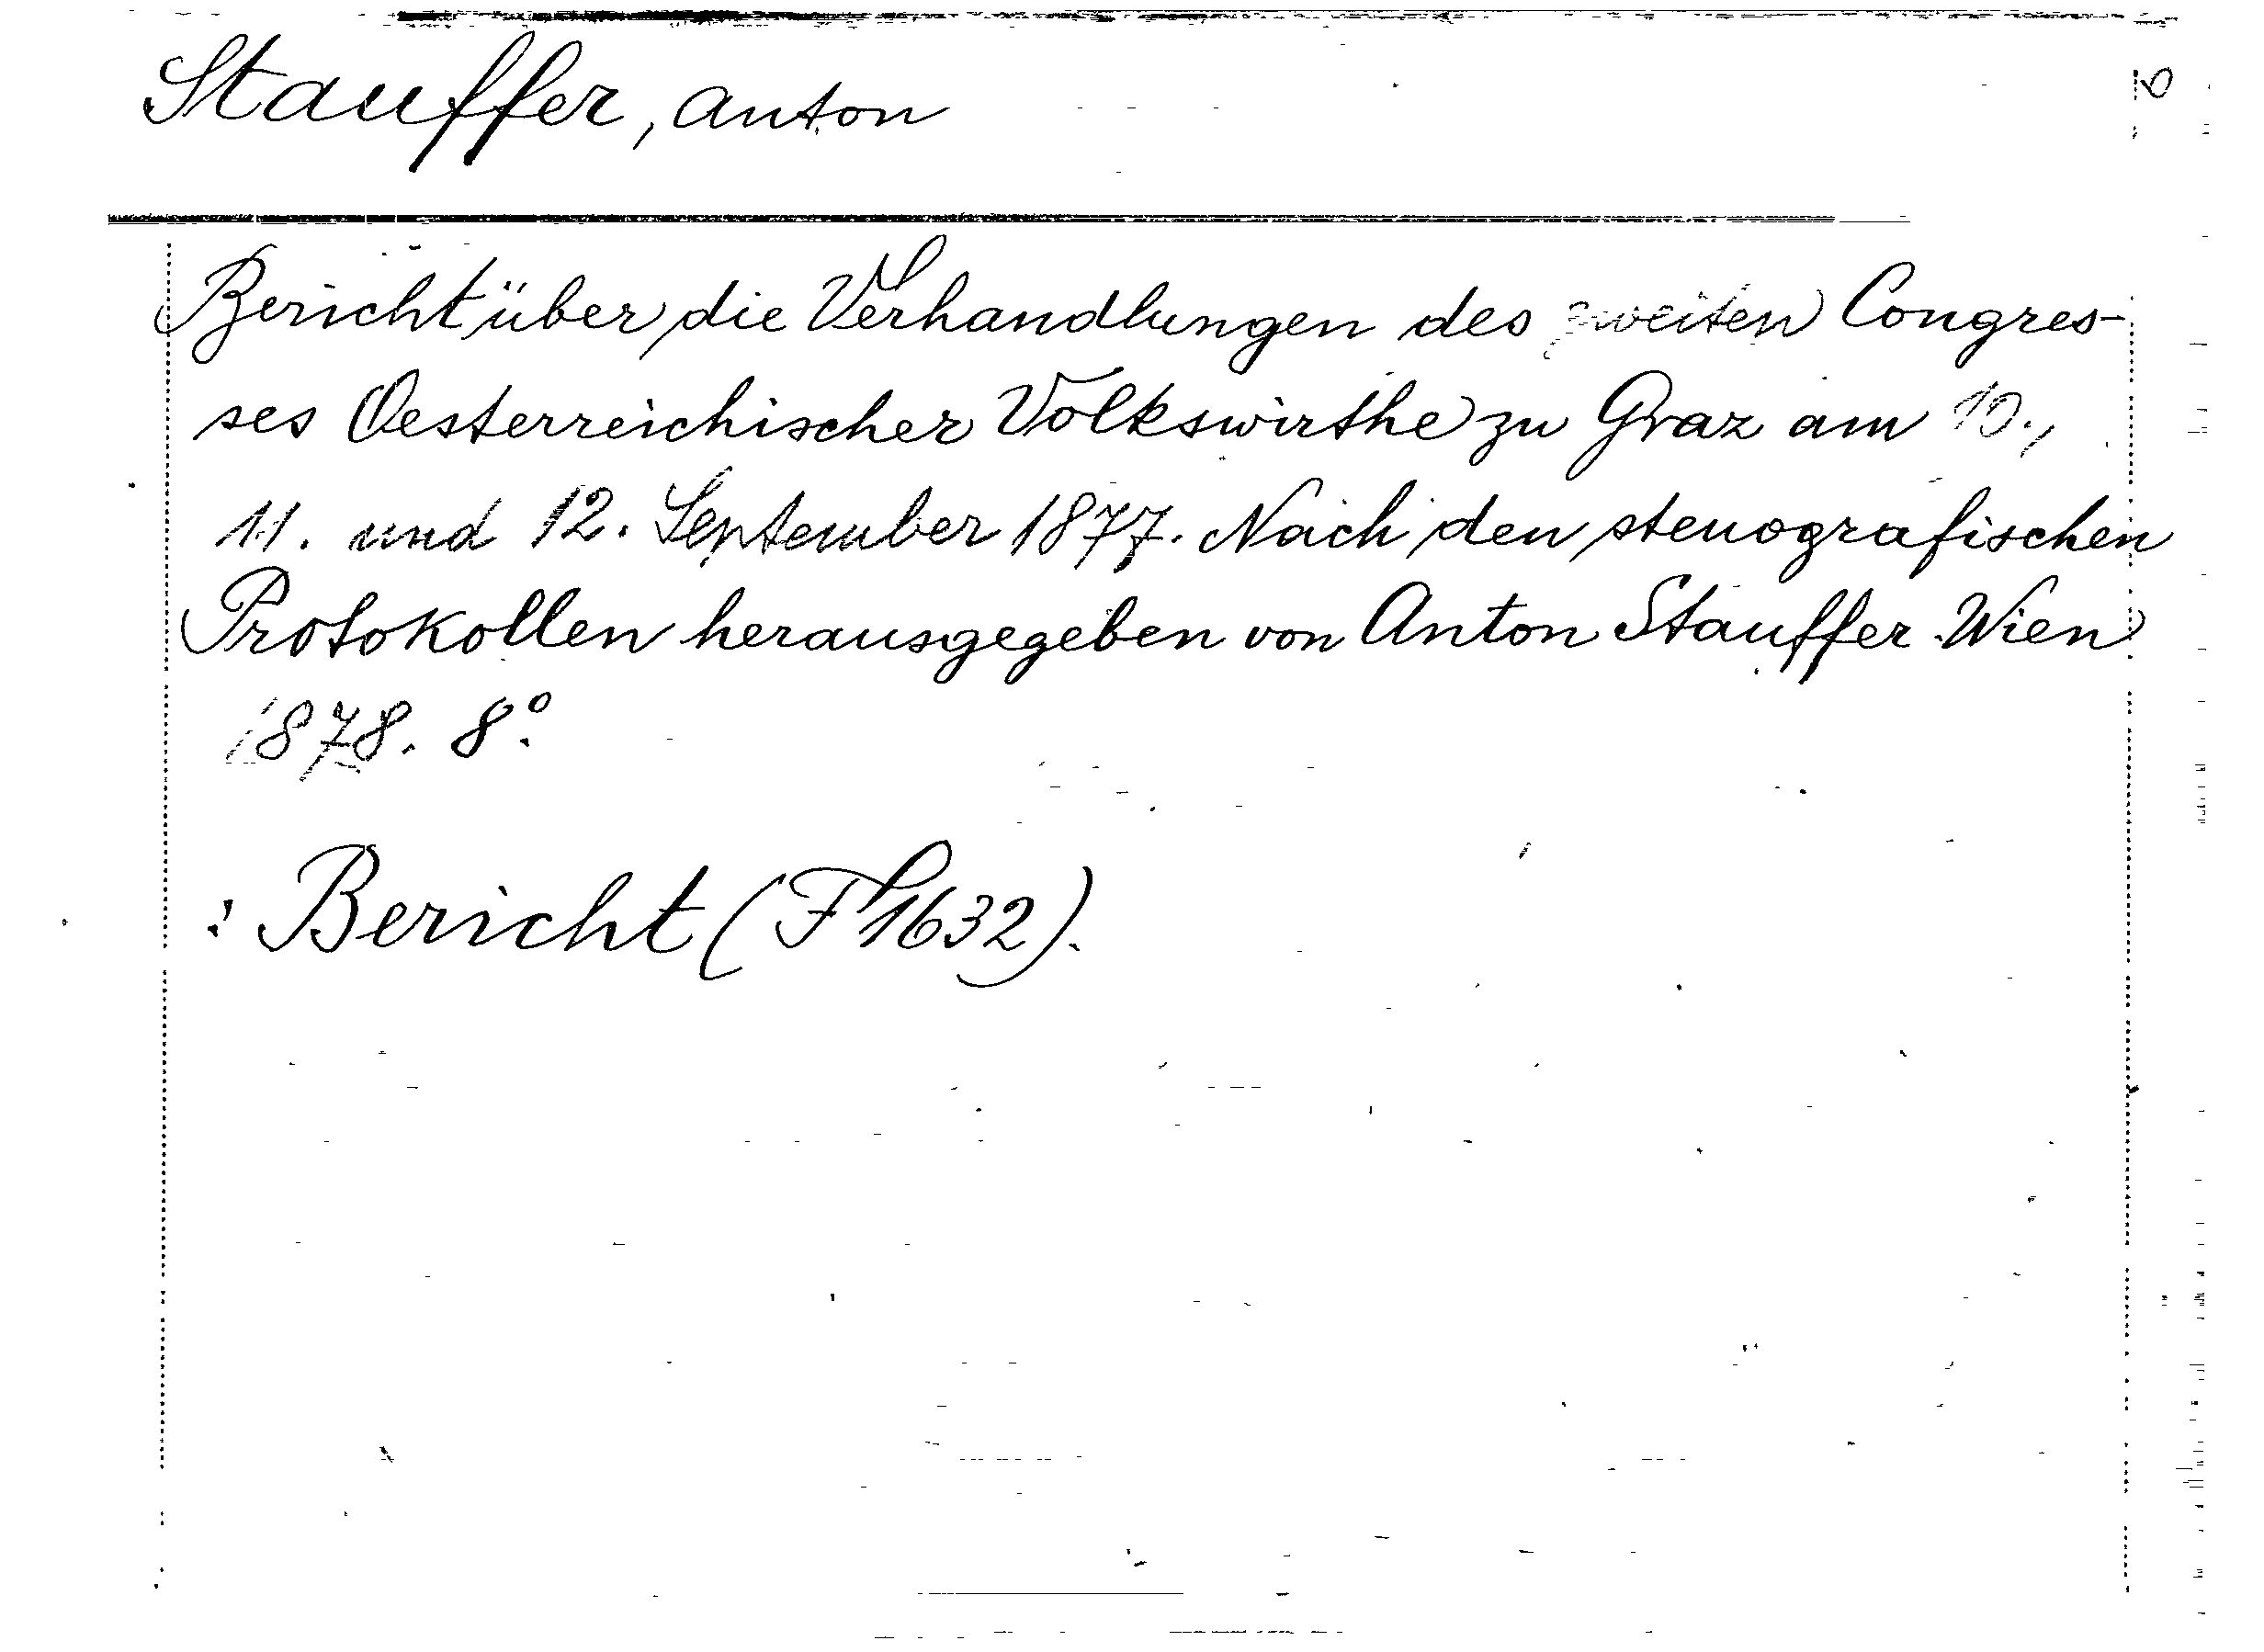 Stauffer, Anton
Bericht über die Verhandlungen des zweiten Congres-
ses Oesterreichischer Volkswirthe zu Graz am 10.,
11. und 12. September 1877. Nach den stenografischen
Protokollen herausgegeben von Anton Stauffer. Wien
1878. 8°.
: Bericht (F 1632).